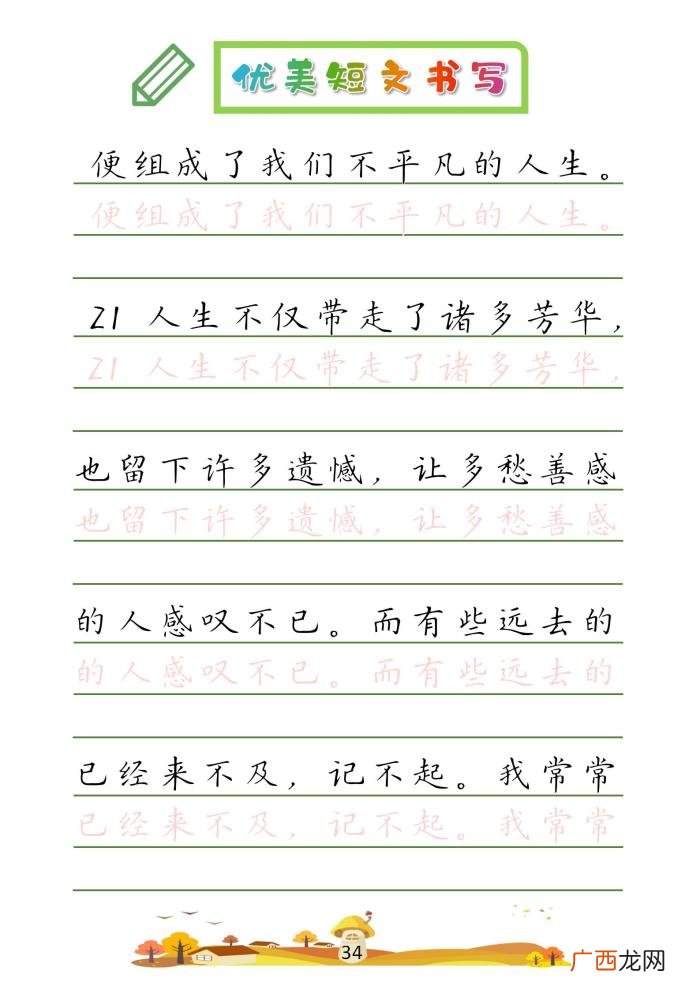 优美短文书写
便组成了我们不平凡的人生。
便组成了我们不平凡的人生。
21 人生不仅带走了诸多芳华，
21 人生不仅带走了诸多芳华，
也留下许多遗憾，让多愁善感
也留下许多遗憾，让多愁善感
的人感叹不已。而有些远去的
的人感叹不已。而有些远去的
已经来不及，记不起。我常常
已经来不及，记不起。我常常
34
广西龙网